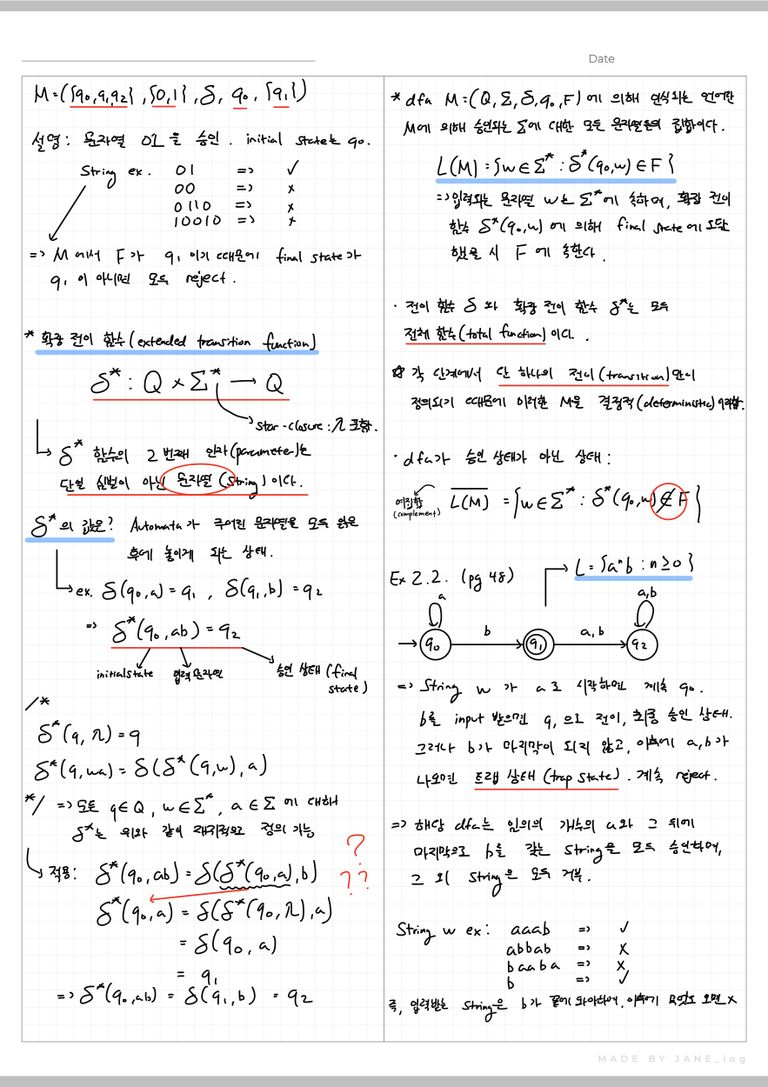 Date
M=({q₀,q₁,q₂},{0,1},δ,q₀,{q₁})
설명: 문자열 01을 승인. initial state는 q₀.
String ex. 01 => ✓
00 => x
0110 => x
10010 => x
=> M에서 F가 q₁이기 때문에 final state가
q₁이 아니면 모두 reject.
* 확장 전이 함수(extended transition function)
δ* : Q × Σ* → Q
star-closure: λ 포함.
δ* 함수의 2번째 인자(parameter)는
단일 심벌이 아닌 문자열(String)이다.
δ*의 값은? Automata가 주어진 문자열을 모두 읽은
후에 놓이게 되는 상태.
ex. δ(q₀,a)=q₁, δ(q₁,b)=q₂
=> δ*(q₀,ab)=q₂
initial state 입력 문자열 승인 상태(final
state)
/*
δ*(q,λ)=q
δ*(q,wa)=δ(δ*(q,w),a)
*/ => 모든 q∈Q, w∈Σ*, a∈Σ에 대해
δ*는 위와 같이 재귀적으로 정의 가능
적용: δ*(q₀,ab)=δ(δ*(q₀,a),b) ? ??
δ*(q₀,a)=δ(δ*(q₀,λ),a)
=δ(q₀,a)
=q₁
=> δ*(q₀,ab)=δ(q₁,b)=q₂
* dfa M=(Q,Σ,δ,q₀,F)에 의해 인식되는 언어란
M에 의해 승인되는 Σ에 대한 모든 문자열들의 집합이다.
L(M)={w∈Σ* : δ*(q₀,w)∈F}
=> 입력되는 문자열 w는 Σ*에 속하며, 확장 전이
함수 δ*(q₀,w)에 의해 final state에 도달
했을 시 F에 속한다.
· 전이 함수 δ와 확장 전이 함수 δ*는 모두
전체 함수(total function)이다.
☆ 각 단계에서 단 하나의 전이(transition)만이
정의되기 때문에 이러한 M을 결정적(deterministic)이라함.
· dfa가 승인 상태가 아닌 상태:
여집합 (complement) L(M)‾={w∈Σ* : δ*(q₀,w)∉F}
Ex 2.2. (pg 48) L={aⁿb : n≥0}
a a,b
q₀ b q₁ a,b q₂
=> String w가 a로 시작하면 계속 q₀.
b를 input 받으면 q₁으로 전이, 최종 승인 상태.
그러나 b가 마지막이 되지 않고, 이후에 a,b가
나오면 트랩 상태(trap state). 계속 reject.
=> 해당 dfa는 임의의 개수의 a와 그 뒤에
마지막으로 b를 갖는 String을 모두 승인하며,
그 외 String은 모두 거부.
String w ex: aaab => ✓
abbab => x
baaba => x
b => ✓
즉, 입력받는 String은 b가 끝에 와야하며, 이후에 오면 x
MADE BY JANE_log